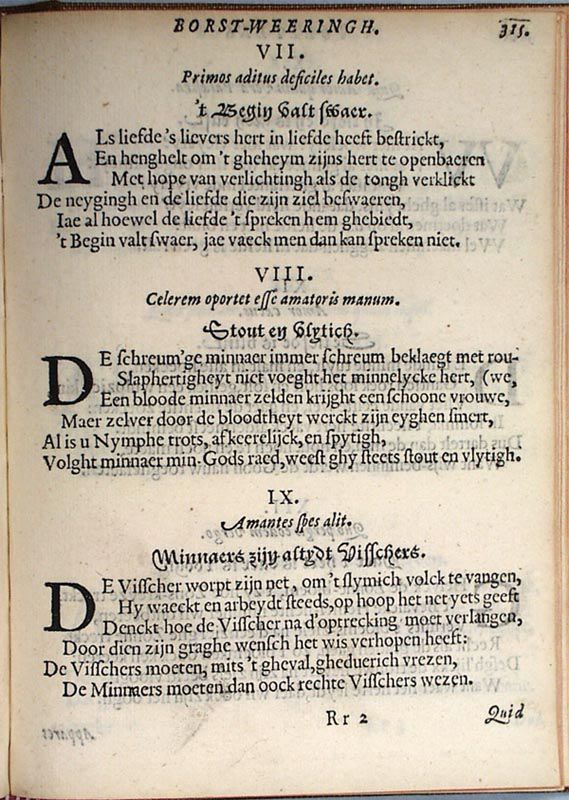 BORST-WEERINGH. 315.
VII.
Primos aditus deficiles habet.
't Begin valt swaer.
ALs liefde 's lievers hert in liefde heeft bestrickt,
En henghelt om 't gheheym zijns hert te openbaeren
Met hope van verlichtingh als de tongh verklickt
De neygingh en de liefde die zijn ziel beswaeren,
Iae al hoewel de liefde 't spreken hem ghebiedt,
't Begin valt swaer, jae vaeck men dan kan spreken niet.
VIII.
Celerem oportet esse amatoris manum.
Stout en Vlytich.
DE schreum'ge minnaer immer schreum beklaegt met rou-
Slaphertigheyt niet voeght het minnelycke hert, (we,
Een bloode minnaer zelden krijght een schoone vrouwe,
Maer zelver door de bloodtheyt werckt zijn eyghen smert,
Al is u Nymphe trots, afkeerelijck, en spytigh,
Volght minnaer min-Gods raed, weest ghy steets stout en vlytigh.
IX.
Amantes spes alit.
Minnaers zijn altydt Visschers.
DE Visscher worpt zijn net, om 't slymich volck te vangen,
Hy waeckt en arbeydt steeds, op hoop het net yets geeft
Denckt hoe de Visscher na d'optrecking moet verlangen,
Door dien zijn graghe wensch het wis verhopen heeft:
De Visschers moeten, mits 't gheval, gheduerich vrezen,
De Minnaers moeten dan oock rechte Visschers wezen.
Rr 2 Quid